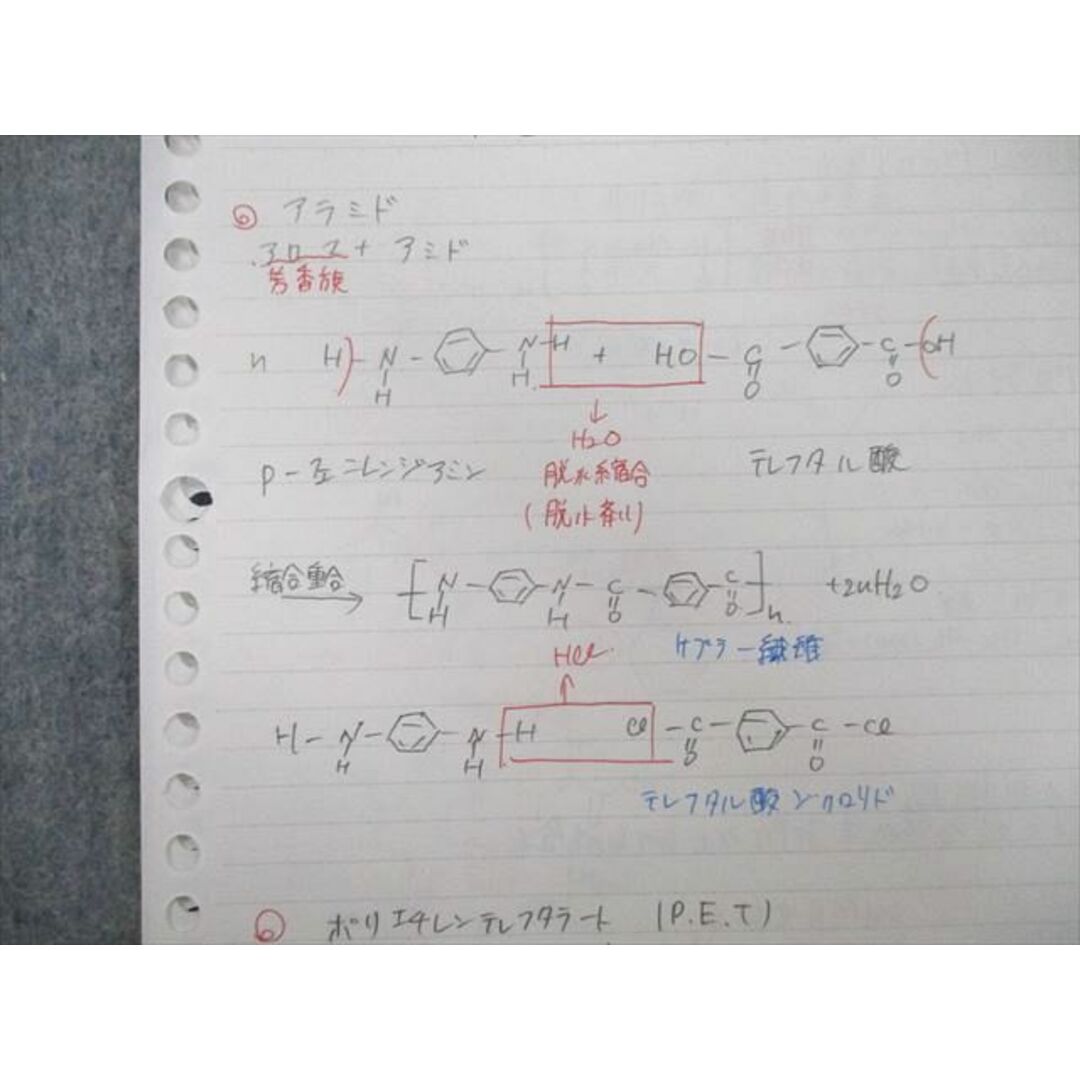 ⑥ アラミド
アロマ + アミド
芳香族
n H-N- -N-H + HO-C- -C-OH
H H O O
↓
H₂O
p-フェニレンジアミン 脱水縮合 テレフタル酸
(脱水剤)
縮合重合 [N- -N-C- -C]n +2nH₂O
H H O O
ケブラー繊維
HCl
↑
H-N- -N-H Cl-C- -C-Cl
H H O O
テレフタル酸ジクロリド
⑥ ポリエチレンテレフタラート (P.E.T)